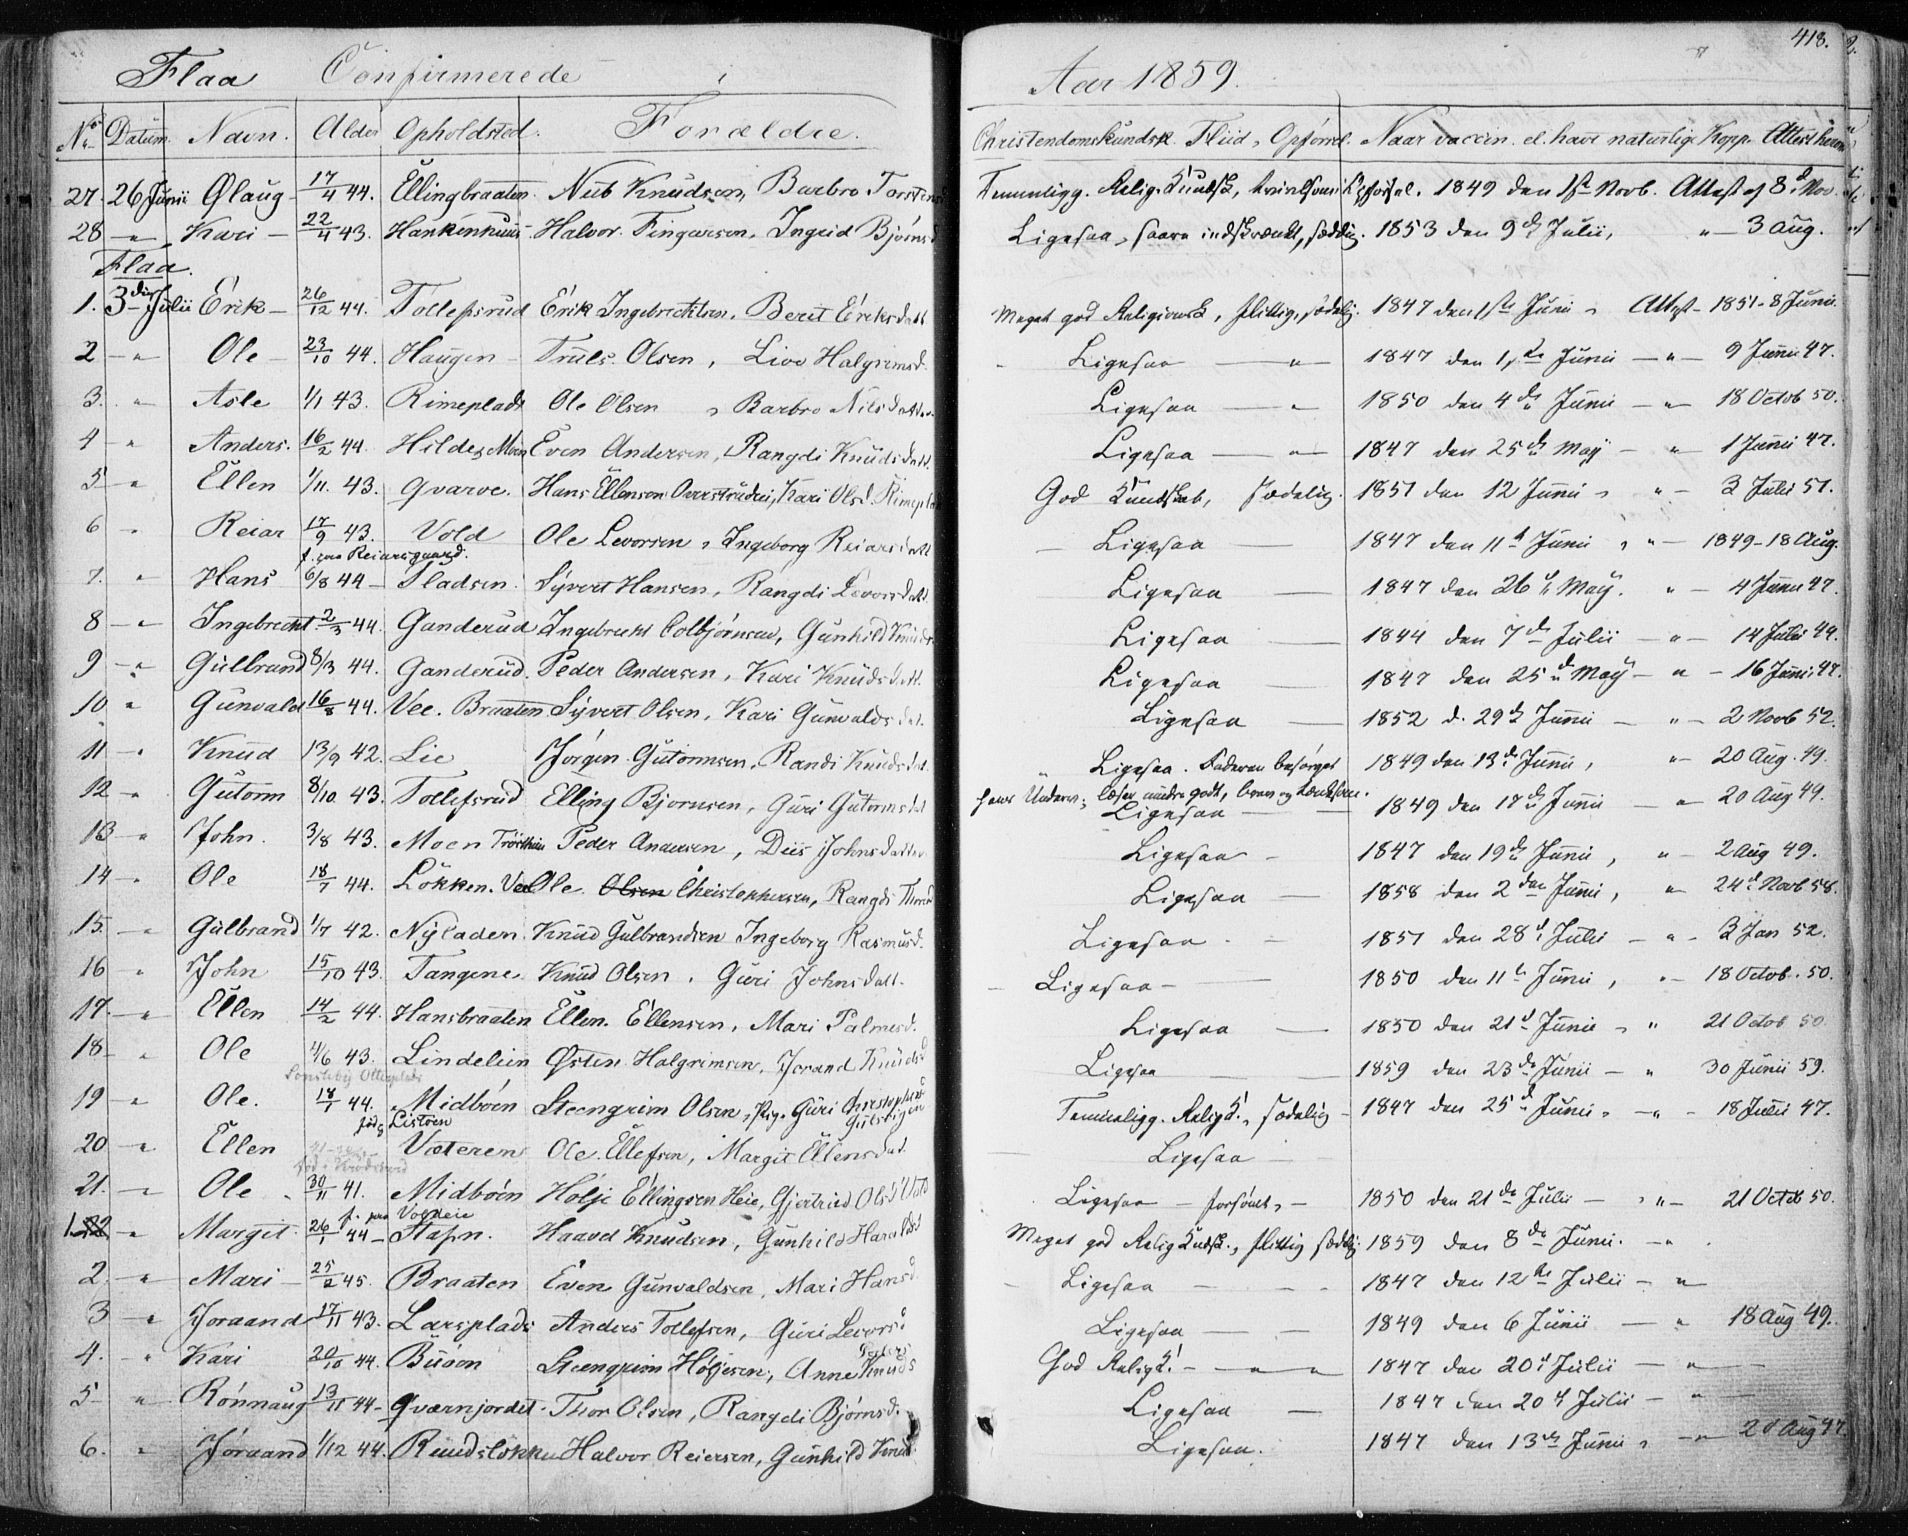 418.
Flaa Confirmerede i Aar 1859.
No Datum. Navn. Alder Opholdsted. Forældre. Christendomskundsk. Fliid, Opførsel. Naar vaccin. el. havt naturlige Kopp. Attest herom
27. 26 Junii Ølaug 17/4 44. Ellingbraaten. Nub Knudsen, Barbro Torstens Temmeligg. Relig. Kundsk, Opførsel. 1849 den 1ste Novb. Attest af 8d Nov.
28 - " Kari - 22/4 43. Hankenhuus Halvor Fingarsen, Ingrid Bjørnsd Ligesaa, saare indskrænkt, sædelig. 1853 den 9de Julii, " - 3 Aug.
Flaa.
1. 3die Julii Erik - 26/12 44. Tollefsrud Erik Ingebrechtsen, Berit Eriksdatt Meget god Religionsk, flittig, sædelig. 1847 den 1ste Junii, Attest - 1851 - 8 Junii.
2 - " Ole - 23/10 44. Haugen - Truls Olsen, Livo Halgrimsd. Ligesaa - " 1847 den 1ste Junii - " - 9 Junii 47.
3. " Asle 1/1 43. Rimeplads Ole Olsen, Barbro Nilsdatter Ligesaa - " 1850 den 4de Junii - " - 18 Octob 50.
4 - " Anders. 16/2 44. Hilde, Moen Even Andersen, Rangdi Knudsdatt. Ligesaa - " - 1847 den 25de May - " - 1 Junii 47.
5 " Ellen 1/11. 43. Qvarve. Hans Ellensen Overstrudei, Kari Olsd. Rimeplads God Kundskab, sædelig. 1851 den 12 Junii, " - 3 Julii 51.
6 " Reiar 17/9 43. Vold Ole Levorsen, Ingeborg Reiarsdatt - Ligesaa - 1847 den 11te Junii, " - 1849 - 18 Aug.
f. paa Reiarsgaard.
7. " Hans 6/8 44 - Pladsen. Syvert Hansen, Rangdi Levorsdatt. Ligesaa 1847 den 26de May. " - 4 Junii 47.
8 - " Ingebrecht 2/3 44. Ganderud Ingebrecht Colbjørnsen, Gunhild Knuds Ligesaa - 1844 den 7de Julii - " - 14 Julii 44.
9 - " Gulbrand 8/3 44. Ganderud. Peder Andersen, Kari Knudsdatt. Ligesaa - 1847 den 25de May - " - 16 Junii 47.
10 " Gunvald 16/8 44. Vee. Braaten Syvert Olsen, Kari Gunvaldsdat. Ligesaa - 1852 d. 29de Junii - " - 2 Novb 52.
11 - " Knud 13/9 42. Lie Jørgen Gutormsen, Randi Knudsdat. Ligesaa. Faderen besørget 1849 den 13de Junii, " - 20 Aug. 49.
12 " Gutorm 8/10. 43. Tollefsrud Elling Bjornsen, Guri Gutormsdat hans Underv; læser mindre godt, Ligesaa - 1849 den 17de Junii - " - 20 Aug 49.
13 - " John. 3/8 43. Moen Peder Andersen, Deis Johnsdatter Ligesaa - 1847 den 19de Junii, " - 2 Aug 49.
14 - " Ole 18/7 44. Løkken. Vee Ole Olsen Christophersen, Rangdi Ligesaa - 1858 den 2den Junii, " 24d Novb 58.
15. - " Gulbrand 1/7 42. Nyladen. Knud Gulbrandsen Ingeborg Rasmusd. Ligesaa. - 1851 den 28de Julii - " - 3 Jan 52.
16 " John 15/10 43. Tangene. Knud Olsen, Guri Johnsdatt. - Ligesaa - 1850 den 11te Junii, " - 18 Octob. 50.
17. - " Ellen 14/2 44. Hansbraaten Ellen Ellensen, Mari Palmesd. Ligesaa - 1850 den 21d Junii, " 21 Octob 50
18 - " Ole 4/6 43. Lindelien Østen Halgrimsen, Jorand Knudsd Ligesaa - 1859 den 23de Junii - " 30 Junii 59.
19 - " Ole. 18/1 44. Midbøen Steengrim Olsen, Pige Guri Christophersd Temmeligg. Relig.K., sædelig - 1847 den 25d Junii, - " - 18 Julii 47.
født Listøen Gulsvigen
20 - " Ellen Væteren Ole Ellefsen, Margit Ellensdat. Ligesaa -
Fød i Krødsherred
21. - " Ole 30/11 41. Midbøen Holje Ellingsen Heie, Gjertrud Olsd. Ligesaa - forsømt, - 1850 den 21de Julii - " - 21 Octob 50.
f. paa Volneie
1. 22 " Margit 26/1 44 - Stafn. Haavel Knudsen, Gunhild Haraldsd Meget god Relig Kudsk., flittig sædelig. 1859 den 8de Junii. - "
2. - " Mari - 25/2 45. Braaten Even Gunvaldsen, Mari Hansd - Ligesaa - 1847 den 12te Julii - "
3 - " Joraand 17/11 43. Larsplads Anders Tollefsen, Guri Levorsd Ligesaa - 1849 den 6 Junii - " 18 Aug 49.
4. - " Kari 20/10 44. Buøen Steengrim Holjesen, Anne Knuds God Relig K. - " 1847 den 20d Julii - "
5 - " Rønnaug 13/11 44 - Qværnjordet. Thor Olsen, Rangdi Bjørnsd. Ligesaa - 1847 den 20d Julii - "
6. " Jøraand 1/12 44. Ruudsløkken Halvor Reiersen, Gunhild Knud Ligesaa. 1847 den 13de Junii, - " - 20 Aug 47.